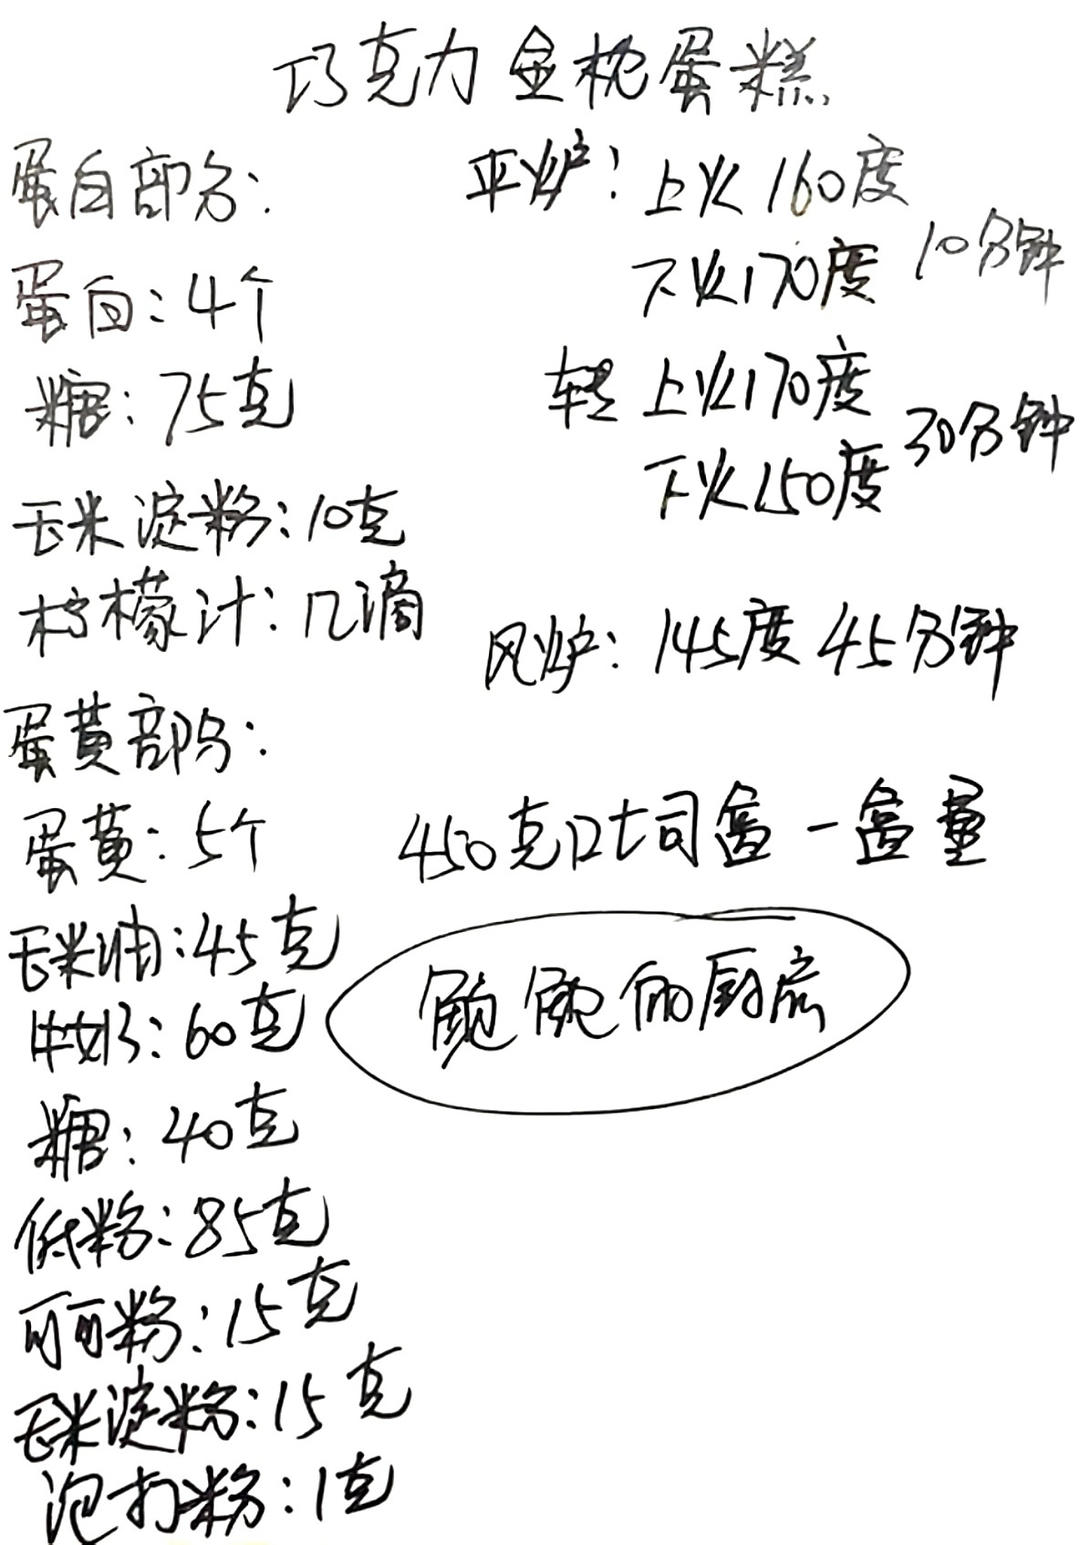 巧克力金枕蛋糕
蛋白部分:
蛋白:4个
糖:75克
玉米淀粉:10克
柠檬汁:几滴
蛋黄部分:
蛋黄:5个
玉米油:45克
牛奶:60克
糖:40克
低粉:85克
可可粉:15克
玉米淀粉:15克
泡打粉:1克
平炉:上火160度
下火170度 10分钟
转上火170度
下火150度 30分钟
风炉:145度45分钟
450克吐司盒一盒量
的厨房